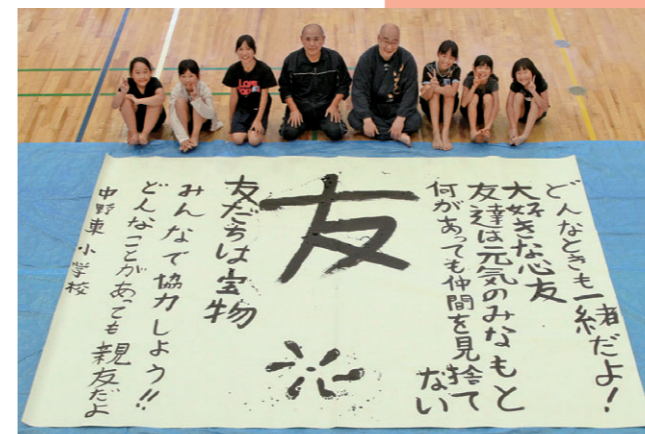 どんなときも一緒だよ！
大好きな心友
友達は元気のみなもと
何があっても仲間を見捨て
ない
友
友だちは宝物
みんなで協力しよう!!
どんなことがあっても親友だよ
中野東小学校